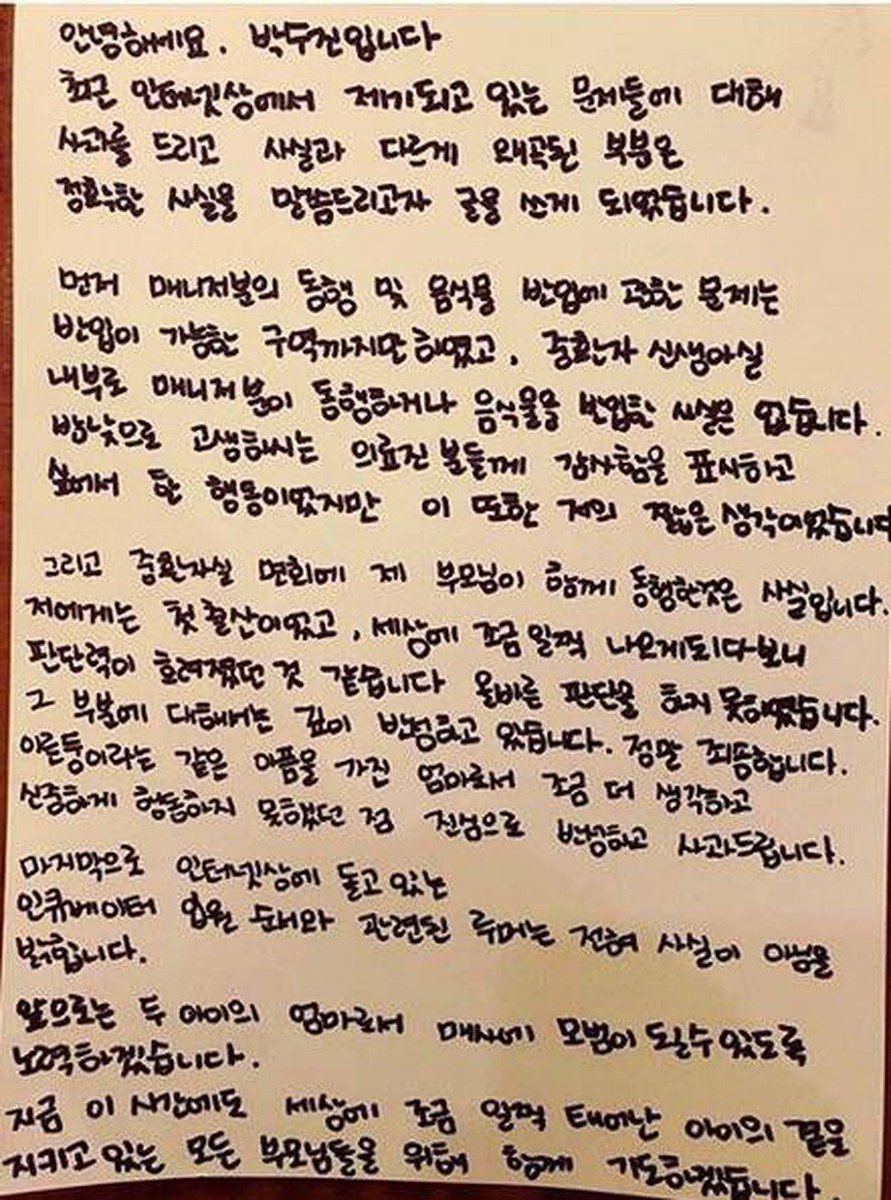 안녕하세요. 박수진입니다
최근 인터넷상에서 제기되고 있는 문제들에 대해
사과를 드리고 사실과 다르게 왜곡된 부분은
정확한 사실을 말씀드리고자 글을 쓰게 되었습니다.
먼저 매니저분의 동행 및 음식물 반입에 관한 문제는
반입이 가능한 구역까지만 하였고, 중환자 신생아실
내부로 매니저분이 동행하거나 음식물을 반입한 사실은 없습니다.
밤낮으로 고생하시는 의료진분들께 감사함을 표시하고
싶어서 한 행동이었지만 이 또한 저의 짧은 생각이었습니다
그리고 중환자실 면회에 제 부모님이 함께 동행한것은 사실입니다.
저에게는 첫 출산이었고, 세상에 조금 일찍 나오게되다보니
판단력이 흐려졌던 것 같습니다 올바른 판단을 하지 못하였습니다.
그 부분에 대해서는 깊이 반성하고 있습니다. 정말 죄송합니다.
이른둥이라는 같은 아픔을 가진 엄마로서 조금 더 생각하고
신중하게 행동하지 못했던 점 진심으로 반성하고 사과드립니다.
마지막으로 인터넷상에 돌고 있는
인큐베이터 입원 순서와 관련된 루머는 전혀 사실이 아님을
밝힙니다.
앞으로는 두 아이의 엄마로서 매사에 모범이 되실수있도록
노력하겠습니다.
지금 이 시간에도 세상에 조금 일찍 태어난 아이의 곁을
지키고 있는 모든 부모님들을 위해 함께 기도하겠습니다.